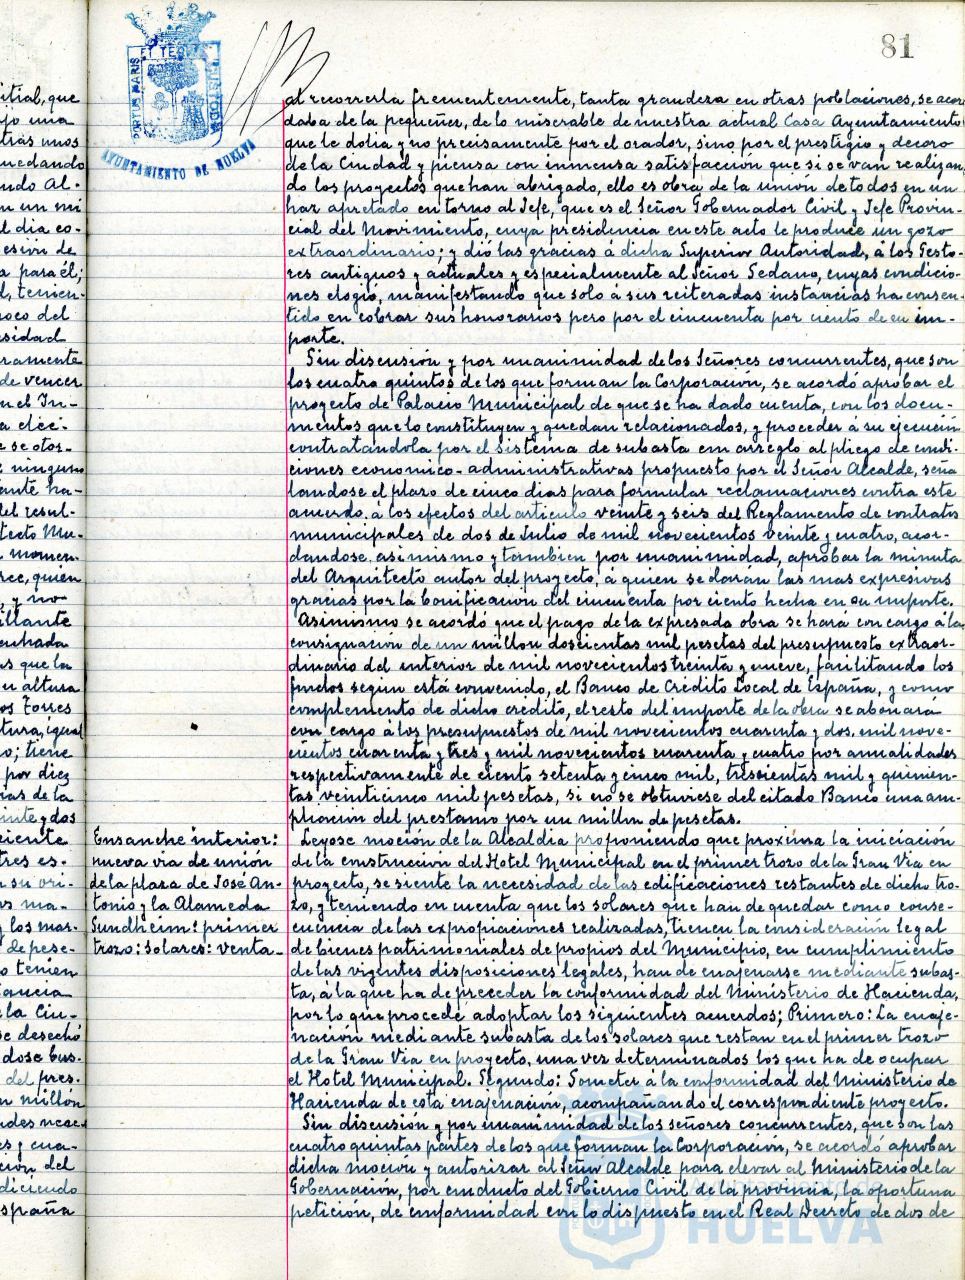 81
PORTUS MARIS ET TERRÆ CUSTODIA
AYUNTAMIENTO DE HUELVA
al recorrerla frecuentemente, tanta grandeza en otras poblaciones, se acor
daba de la pequeñez, de lo miserable de nuestra actual Casa Ayuntamiento
que le dolia y no precisamente por el orador, sino por el prestigio y decoro
de la Ciudad y piensa con inmensa satisfacción que si se van realizan
do los proyectos que han abrigado, ello es obra de la unión de todos en un
haz apretado en torno al Jefe, que es el Señor Gobernador Civil y Jefe Provin-
cial del Movimiento, cuya presidencia en este acto le produce un gozo
extraordinario; y dió las gracias á dicha Superior Autoridad, á los Gesto-
res antiguos y actuales y especialmente al Señor Sedano, cuyas condicio-
nes elogió, manifestando que solo á sus reiteradas instancias ha consen-
tido en cobrar sus honorarios pero por el cincuenta por ciento de su im-
porte.
Sin discusión y por unanimidad de los Señores concurrentes, que son
los cuatro quintos de los que forman la Corporación, se acordó aprobar el
proyecto de Palacio Municipal de que se ha dado cuenta, con los docu-
mentos que lo constituyen y quedan relacionados, y proceder á su ejecución
contratandola por el sistema de subasta con arreglo al pliego de condi-
ciones economico-administrativas propuesto por el Señor Alcalde, seña
landose el plazo de cinco dias para formular reclamaciones contra este
acuerdo, á los efectos del articulo veinte y seis del Reglamento de contratos
municipales de dos de Julio de mil novecientos veinte y cuatro, acor-
dandose, asi mismo y tambien por unanimidad, aprobar la minuta
del Arquitecto autor del proyecto, á quien se darán las mas expresivas
gracias por la bonificación del cincuenta por ciento hecha en su importe.
Asimismo se acordó que el pago de la expresada obra se hará con cargo á la
consignación de un millon doscientas mil pesetas del presupuesto extraor-
dinario del interior de mil novecientos treinta y nueve, facilitando los
fondos segun está convenido, el Banco de Crédito Local de España, y como
complemento de dicho credito, el resto del importe de la obra se abonará
con cargo á los presupuestos de mil novecientos cuarenta y dos, mil nove-
cientos cuarenta y tres y mil novecientos cuarenta y cuatro por anualidades
respectivamente de ciento setenta y cinco mil, trescientas mil y quinien-
tas veinticinco mil pesetas, si no se obtuviese del citado Banco una am-
pliacion del prestamo por un millon de pesetas.
Ensanche interior:
nueva via de unión
de la plaza de José An-
tonio y la Alameda
Sundheim: primer
trozo: solares: venta.-
Leyose moción de la Alcaldia proponiendo que proxima la iniciación
de la construccion del Hotel Municipal en el primer trozo de la Gran Via en
proyecto, se siente la necesidad de las edificaciones restantes de dicho tro-
zo, y teniendo en cuenta que los solares que han de quedar como conse-
cuencia de las expropiaciones realizadas, tienen la consideración legal
de bienes patrimoniales de propios del Municipio, en cumplimiento
de las vigentes disposiciones legales, han de enajenarse mediante subas-
ta, á la que ha de preceder la conformidad del Ministerio de Hacienda,
por lo que procede adoptar los siguientes acuerdos; Primero: La enaje-
nación mediante subasta de los solares que restan en el primer trozo
de la Gran Via en proyecto, una vez determinados los que ha de ocupar
el Hotel Municipal. Segundo: Someter á la conformidad del Ministerio de
Hacienda de esta enajenación, acompañando el correspondiente proyecto.
Sin discusión y por unanimidad de los señores concurrentes, que son las
cuatro quintas partes de los que forman la Corporación, se acordó aprobar
dicha moción y autorizar al Señor Alcalde para elevar al Ministerio de la
Gobernación, por conducto del Gobierno Civil de la provincia, la oportuna
petición, de conformidad con lo dispuesto en el Real Decreto de dos de
Ayuntamiento de
HUELVA